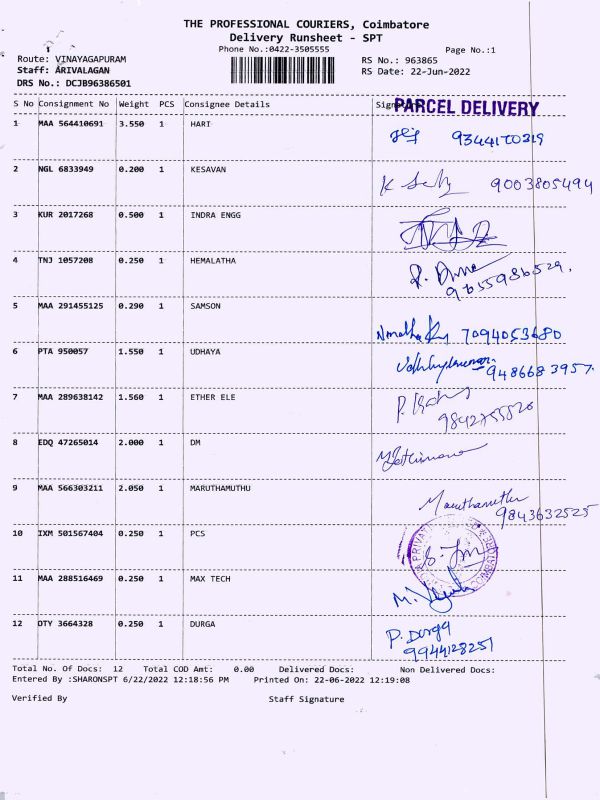 THE PROFESSIONAL COURIERS, Coimbatore
Delivery Runsheet - SPT
Phone No.:0422-3505555 Page No.:1
Route: VINAYAGAPURAM RS No.: 963865
Staff: ARIVALAGAN RS Date: 22-Jun-2022
DRS No.: DCJB96386501
S No Consignment No Weight PCS Consignee Details PARCEL DELIVERY
1 MAA 564410691 3.550 1 HARI
2 NGL 6833949 0.200 1 KESAVAN 9003805494
3 KUR 2017268 0.500 1 INDRA ENGG
4 TNJ 1057208 0.250 1 HEMALATHA
9655986529.
5 MAA 291455125 0.290 1 SAMSON 7094053680
6 PTA 950057 1.550 1 UDHAYA
9486683957.
7 MAA 289638142 1.560 1 ETHER ELE
8 EDQ 47265014 2.000 1 DM
9 MAA 566303211 2.050 1 MARUTHAMUTHU Maruthamuthu
9843632525
10 IXM 501567404 0.250 1 PCS
11 MAA 288516469 0.250 1 MAX TECH
12 OTY 3664328 0.250 1 DURGA P. Durga
9944128251
Total No. Of Docs: 12 Total COD Amt: 0.00 Delivered Docs: Non Delivered Docs:
Entered By :SHARONSPT 6/22/2022 12:18:56 PM Printed On: 22-06-2022 12:19:08
Verified By Staff Signature